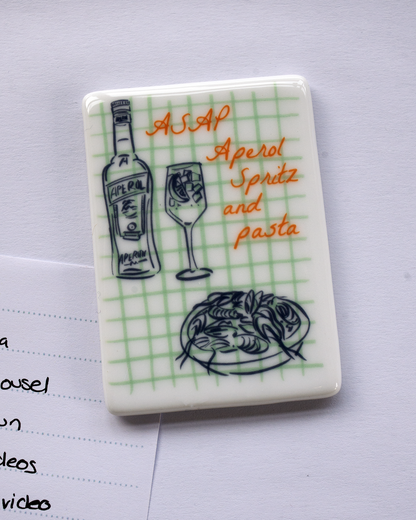 ASAP
Aperol
Spritz
and
pasta
APEROL
APERITIVO
a
ousel
un
deos
video